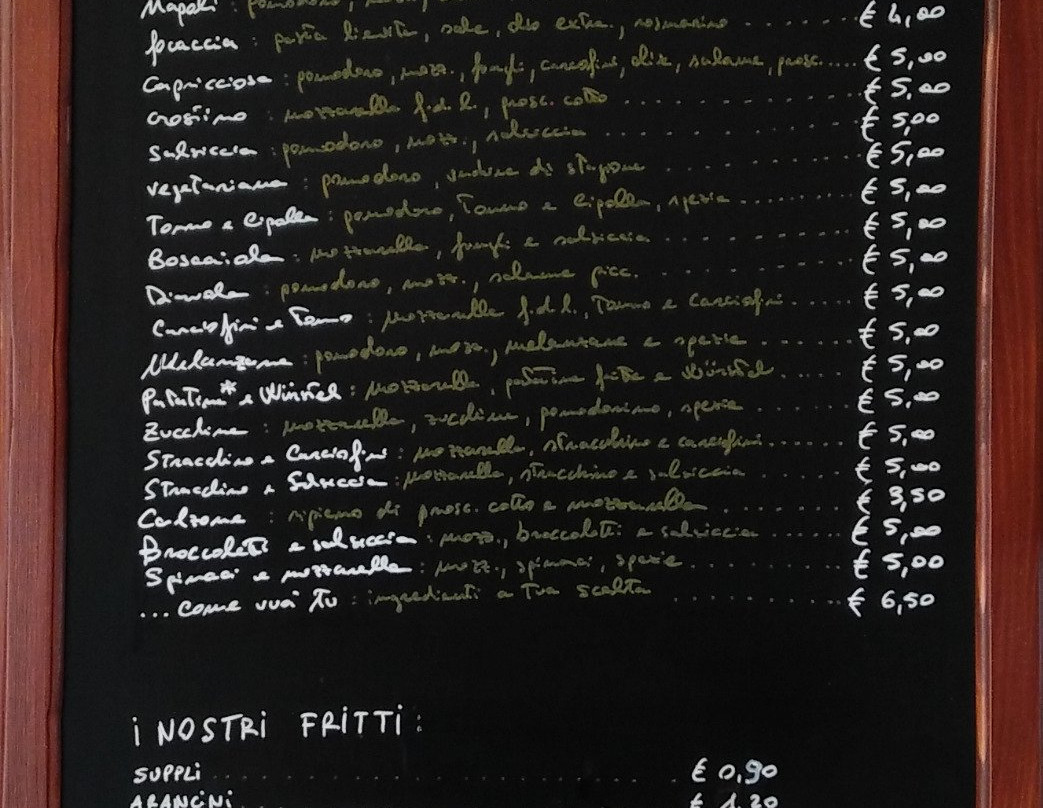 Napoli : pomodoro,
focaccia : pasta lievita, sale, olio extra., rosmarino ..... € 4,00
Capricciosa : pomodoro, mozz., funghi, carciofini, olive, salame, prosc..... € 5,00
crostino : mozzarella f.d.l., prosc. cotto ..... € 5,00
Salsiccia : pomodoro, mozz., salsiccia ..... € 5,00
vegetariana : pomodoro, verdure di stagione ..... € 5,00
Tonno e Cipolla : pomodoro, Tonno e Cipolla, spezie ..... € 5,00
Boscaiola : mozzarella, funghi e salsiccia ..... € 5,00
Diavola : pomodoro, mozz., salame picc. ..... € 5,00
Carciofini e Tonno : mozzarella f.d.l., Tonno e Carciofini ..... € 5,00
Melanzane : pomodoro, mozz., melanzane e spezie ..... € 5,00
Patatine* e Würstel : mozzarella, patatine fritte e Würstel ..... € 5,00
Zucchine : mozzarella, zucchine, pomodorino, spezie ..... € 5,00
Stracchino e Carciofini : mozzarella, stracchino e carciofini ..... € 5,00
Stracchino e Salsiccia : mozzarella, stracchino e salsiccia ..... € 5,00
Calzone : ripieno di prosc. cotto e mozzarella ..... € 3,50
Broccoletti e salsiccia : mozz., broccoletti e salsiccia ..... € 5,00
Spinaci e mozzarella : mozz., spinaci, spezie ..... € 5,00
... come vuoi Tu : ingredienti a Tua scelta ..... € 6,50
i NOSTRi FRiTTi :
SUPPLi ..... € 0,90
ARANCiNi ..... € 1,20